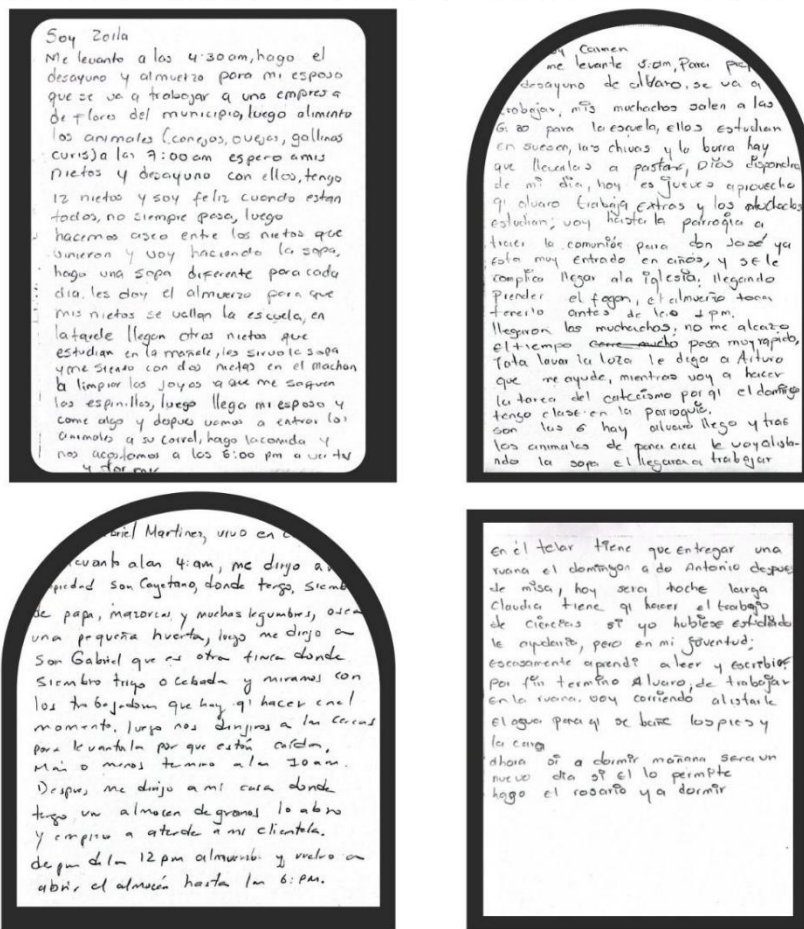 Soy Zoila
Me levanto a las 4:30am, hago el
desayuno y almuerzo para mi esposo
que se va a trabajar a una empresa
de flores del municipio, luego alimento
los animales (conejos, ovejas, gallinas
curis) a las 7:00 am espero a mis
nietos y desayuno con ellos, tengo
12 nietos y soy feliz cuando estan
todos, no siempre pasa, luego
hacemos aseo entre los nietos que
vinieron y voy haciendo la sopa,
hago una sopa diferente para cada
dia. les doy el almuerzo para que
mis nietos se vallan la escuela, en
la tarde llegan otros nietos que
estudian en la mañana, les sirvo la sopa
y me siento con dos nietas en el
a limpiar las joyas a que me saquen
las espinillas, luego llega mi esposo y
come algo y dspues vamos a entrar los
animales a su corral, hago la comida y
nos acostamos a las 6:00 pm a ver tv
y dormir
Carmen
me levante 5:am, Para
desayuno de alvaro, se va a
trabajar, mis muchachos salen a las
6:20 para la escuela, ellos estudian
en suesca, las chivas y la burra hay
que llevarlas a pastar, Dios dispondra
de mi dia, hoy es jueves aprovecho
q' alvaro trabaja extras y los muchachos
estudian; voy hasta la parroqia a
traer la comunión para don José ya
esta muy entrado en años, y se le
complica llegar ala iglesia. llegando
Prender el fogon, el almuerzo toca
tenerlo antes de la 1 pm.
llegaron los muchachos, no me alcazo
el tiempo corre mucho pasa muy rapido,
Tata lavar la loza le digo a Arturo
que me ayude, mientras voy a hacer
la tarea del catecismo por q' el domingo
tengo clase en la parroquia.
son las 6 hay alvaro llego y tras
los animales de para aca le voy alista-
ndo la sopa el llegara a trabajar
Martines, vivo en
alas 4:am, me dirijo a
San Cayetano, donde tengo, siembro
de papa, mazorcas y muchas legumbres, osea
una pequeña huerta, luego me dirijo a
San Gabriel que es otra finca donde
siembro trigo o cebada y miramos con
los trabajadores que hay q' hacer en el
momento, luego nos dirijimos a las cercas
para levantarla por que están caídas,
Mas o menos termino a las 10am.
Despues, me dirijo a mi casa donde
tengo un almacen de granos lo abro
y empiezo a atender a mi clientela.
de las 12 pm almuerzo y vuelvo a
abrir el almacén hasta las 6:pm.
En el telar tiene que entregar una
ruana el domingo a do Antonio despues
de misa, hoy sera noche larga
Claudia tiene q' hacer el trabajo
de ciencias si yo hubiese estudiado
le ayudaria, pero en mi juventud;
escasamente aprendi a leer y escribir
Por fin termino Alvaro, de trabajar
En la ruana. voy corriendo alistarle
El agua para q' se bañe los pies y
la cara
ahora si a dormir mañana sera un
nuevo dia si El lo permite
hago el rosario y a dormir